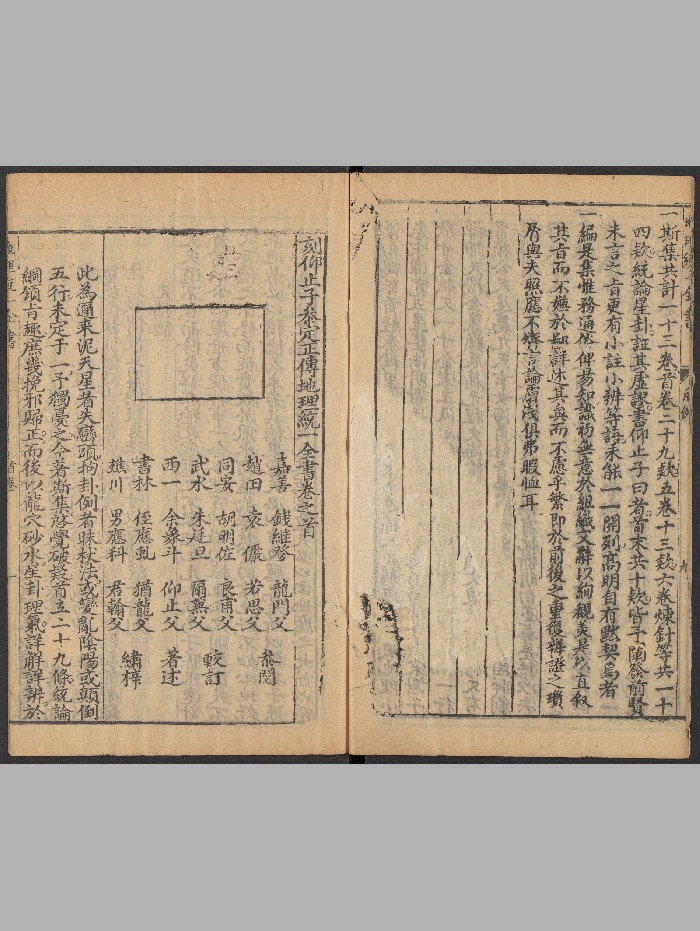 一斯集共計一十三卷首卷二十九欵五卷十三欵六卷煉針等共一十
四欵統論星卦証其虛謬書仰止子曰者首末共十欵皆予闡發前賢
未言之旨更有小註小辨等語未能一一開列高明自有默契焉者
一編是集惟務通俗俾易知識初無意於組織文辭以絢觀美是以直叙
其旨而不嫌於詳述其奥而不慮乎繁即於前後之重復辨證之瑣
屑與夫照應不齊言論膚淺俱弗暇恤耳
刻仰止子叅定正傳地理統一全書卷之首
嘉善 錢繼登 龍門父
趙田 袁儼 若思父 叅閱
同安 胡明佐 良甫父
武水 朱廷旦 爾兼父 較訂
西一 余象斗 仰止父 著述
書林 侄應虬 猶龍父
潭川 男應科 君翰父 繡梓
此為邇來泥天星者失巒頭拘卦例者昧杖法或變亂陰陽或顛倒
五行未定于一予獨憂之今著斯集啓覺破疑首立二十九條統論
綱領旨趣庶幾挽邪歸正而後以龍穴砂水星卦理氣詳解詳辨於